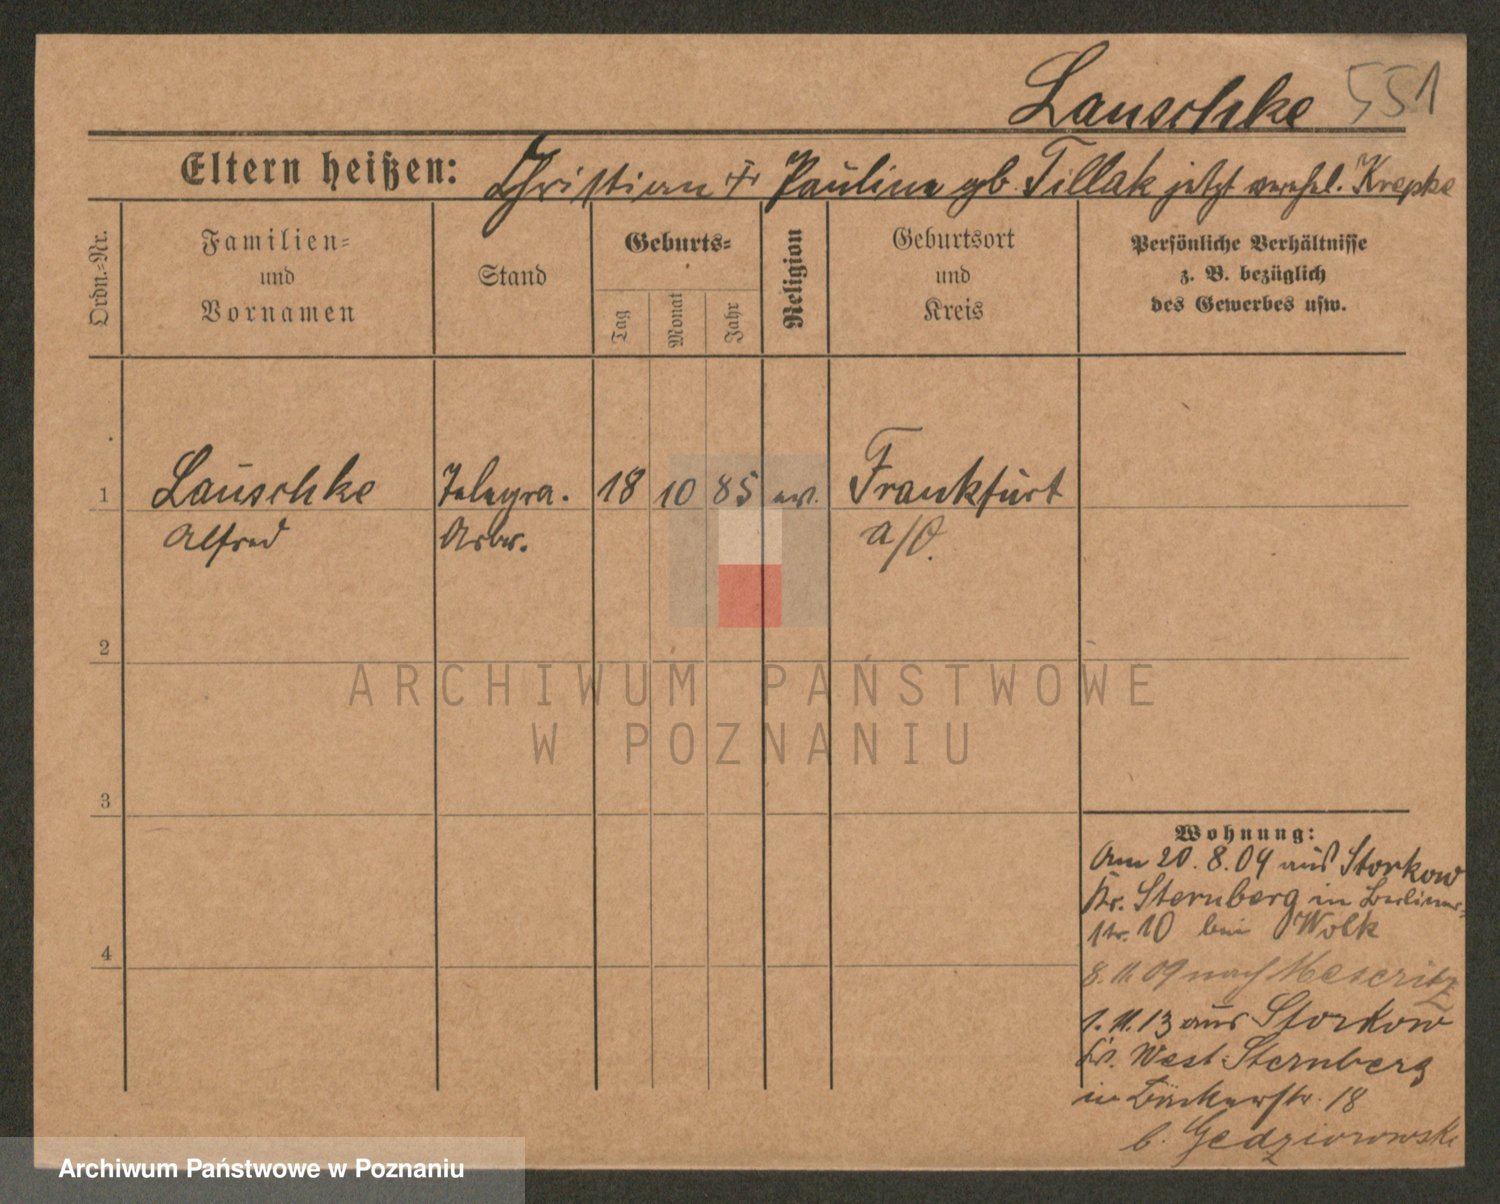 Lauschke 551
Eltern heißen: Christian + Pauline gb. Tillak jetzt verehel. Krepke
Ordn.=Nr.
Familien=
und
Vornamen
Stand
Geburts=
Tag
Monat
Jahr
Religion
Geburtsort
und
Kreis
Persönliche Verhältnisse
z. B. bezüglich
des Gewerbes usw.
1 Lauschke Telegra. 18 10 85 ev. Frankfurt
Alfred Arbr. a/O.
2
3
4
Wohnung:
Am 20. 8. 09 aus Storkow
Kr. Sternberg in Berliner-
str. 10 bei Wolk
8. 11. 09 nach Meseritz
1. 11. 13 aus Storkow
Kr. West-Sternberg
in Bäckerstr. 18
b. Gedziorowski
ARCHIWUM PAŃSTWOWE
W POZNANIU
Archiwum Państwowe w Poznaniu